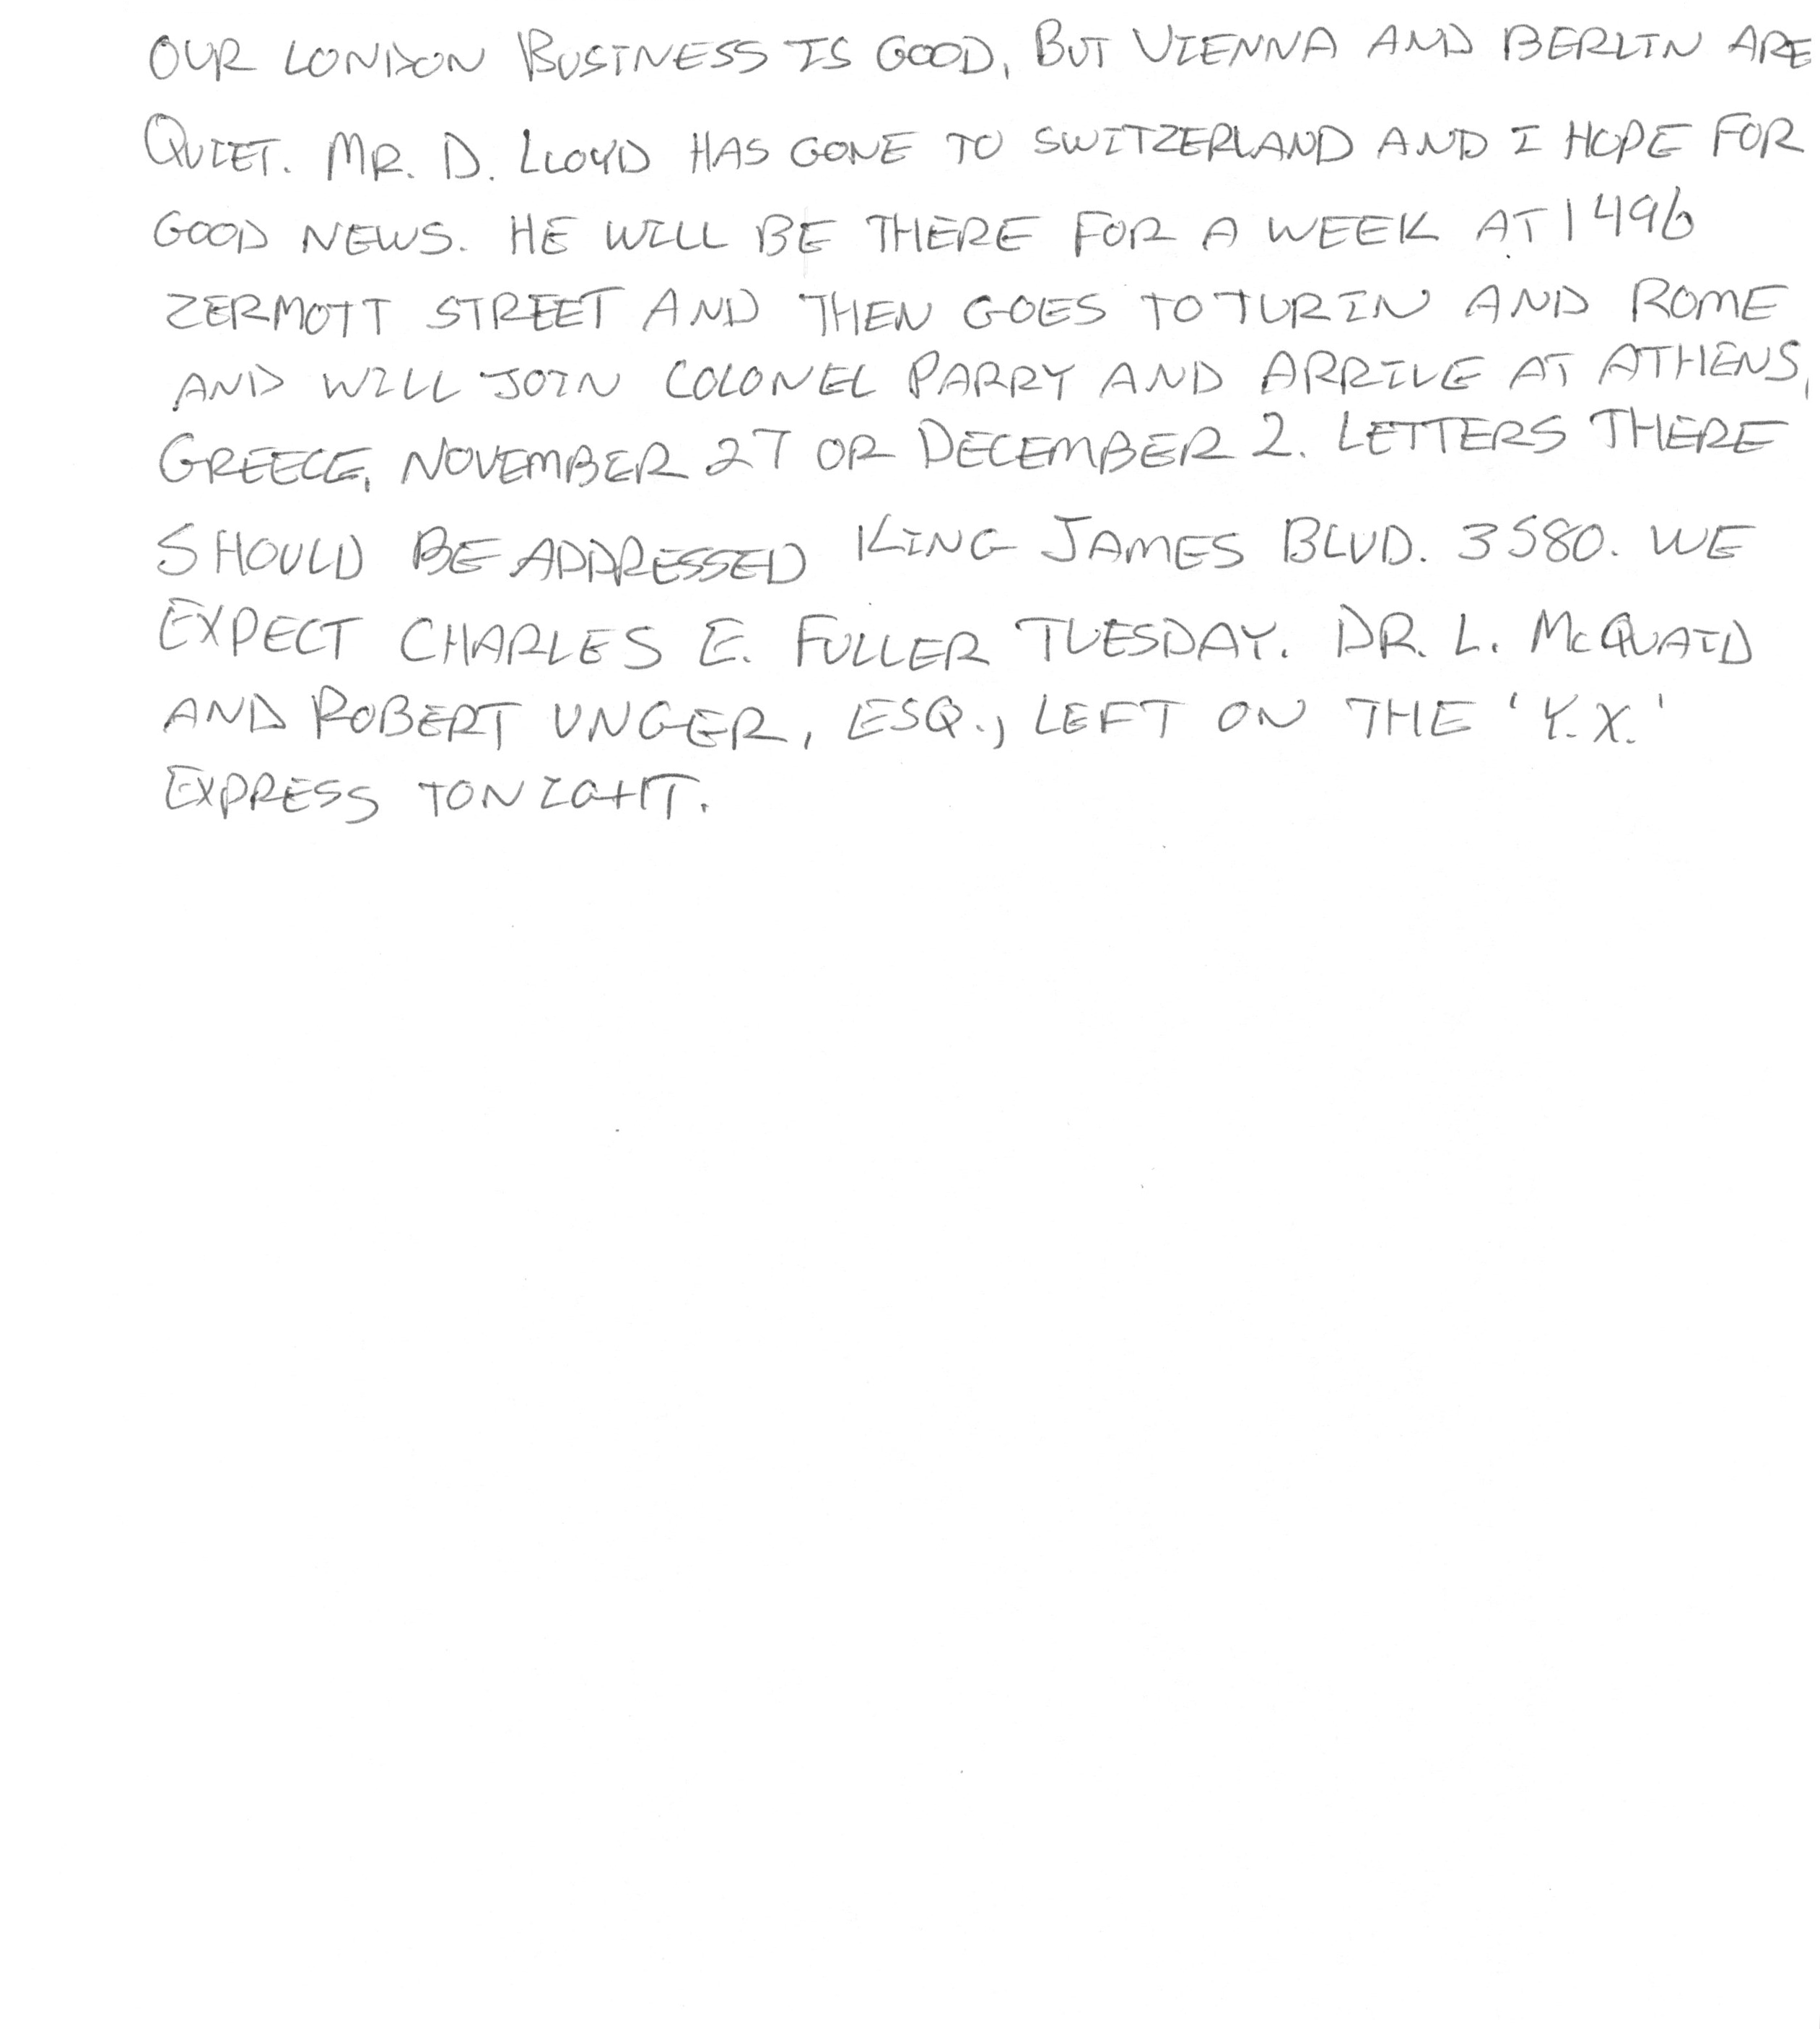 OUR LONDON BUSINESS IS GOOD, BUT VIENNA AND BERLIN ARE
QUIET. MR. D. LLOYD HAS GONE TO SWITZERLAND AND I HOPE FOR
GOOD NEWS. HE WILL BE THERE FOR A WEEK AT 1496
ZERMOTT STREET AND THEN GOES TO TURIN AND ROME
AND WILL JOIN COLONEL PARRY AND ARRIVE AT ATHENS,
GREECE, NOVEMBER 27 OR DECEMBER 2. LETTERS THERE
SHOULD BE ADDRESSED KING JAMES BLVD. 3580. WE
EXPECT CHARLES E. FULLER TUESDAY. DR. L. McQUAID
AND ROBERT UNGER, ESQ., LEFT ON THE 'Y.X.'
EXPRESS TONIGHT.